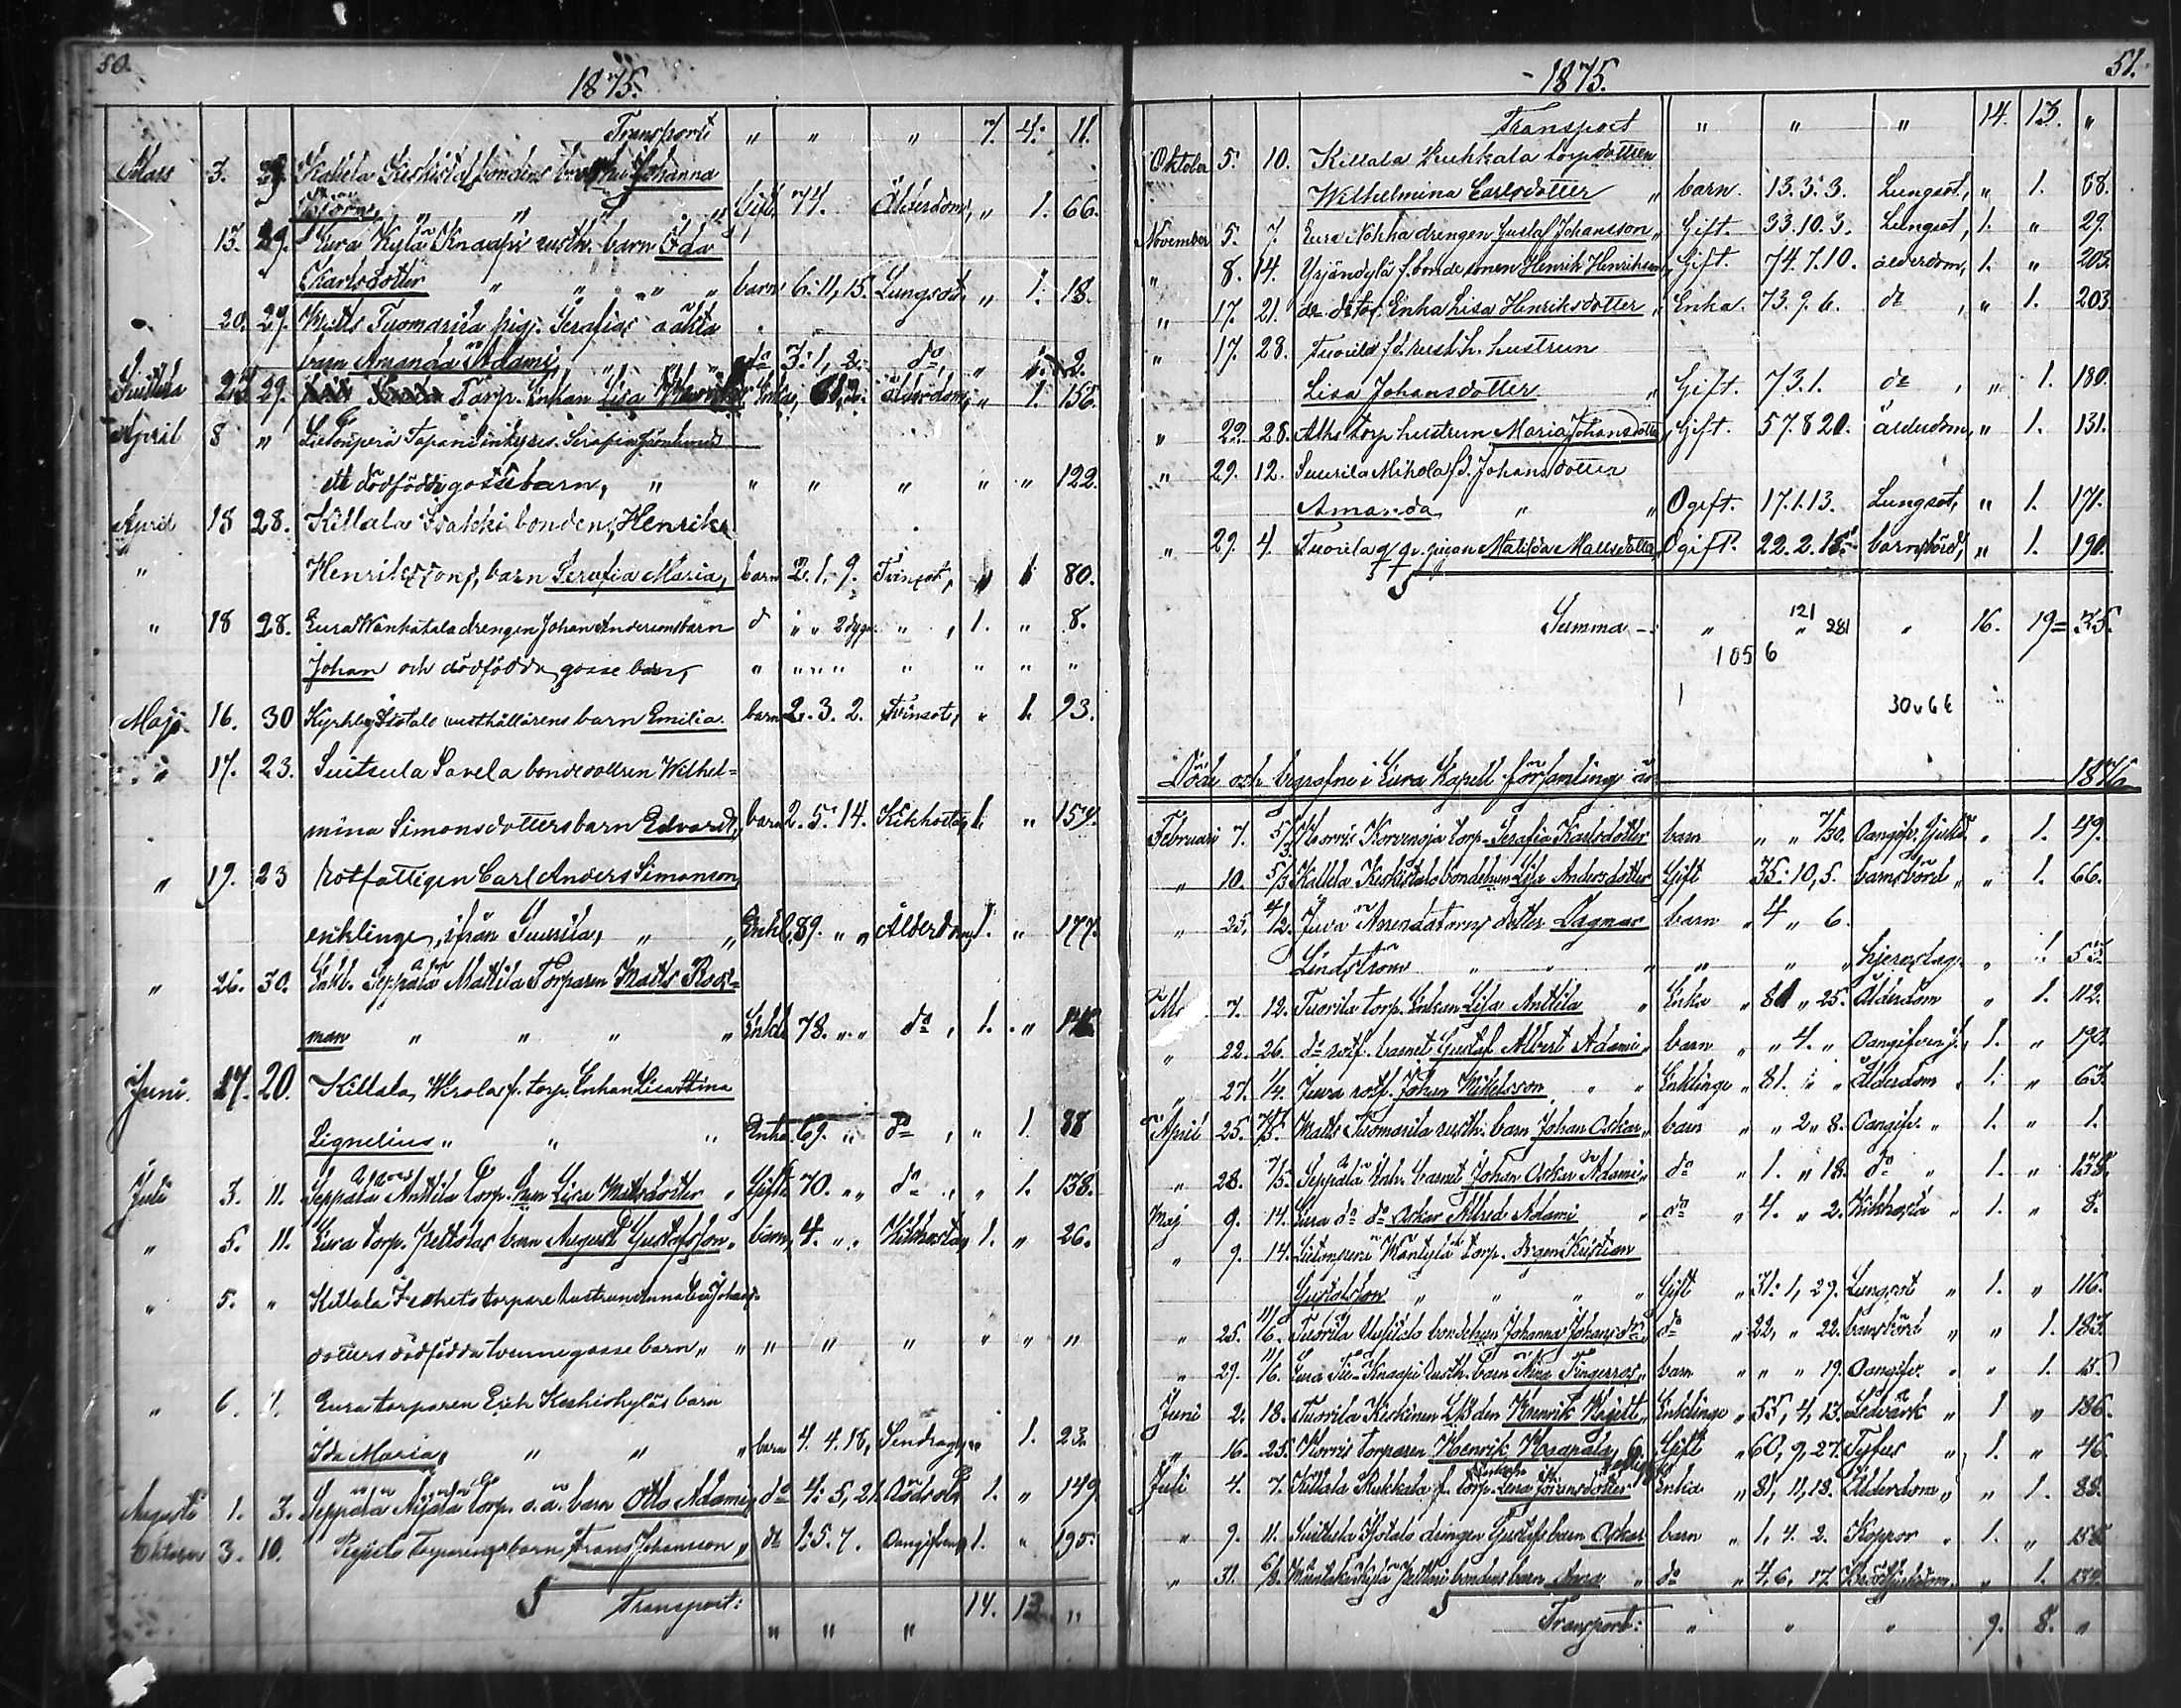 50.
1875.
Transport " " " 7. 4. 11.
Mars 3. 29. Kallela Keskistalo bondens Johanna
" " " Gift, 74. Ålderdom, " 1. 66.
13. 29. Eura Kylä Knaapi rusth. barn Ida
Karlsdotter " " " " barn 6. 11, 15. Lungsot, " 1. 18.
20. 29. Matts Tuomarila pig. Serafias oäkta
barn Amanda Adami, " " " do 3. 1, 2. do, " 1. 2.
23. 29. Torp. Enkan Lisa Enka, ålderdom, " 1. 156.
April 8 " Lietsinperä Tapani inhyses. Serafia
ett dödfödde gossebarn, " " " " " " 122.
April 18 28. Killala Isakki bonden, Henrik
" Henriksons, barn Serafia Maria, barn 2. 1, 9. Tvinsot, " 1 80.
" 18 28. Eura Wanhatala drengen Johan Andersons barn d " " 2 dygn. " , 1. " 8.
Johan och dödfödda gosse barn, " " " " " " " "
Maj 16. 30 Kyrkby Sistalo rusthållarens barn Emilia. barn 2. 3. 2. Tvinsot, " 1. 93.
" 17. 23. Suitsula Pavela bondedottren Wilhel=
mina Simonsdotters barn Edvard, barn 2. 5. 14. Kikhosta, 1. " 154.
" 19. 23 Rotfattigen Carl Anders Simonson,
enklinge, ifrån Suurila, " " Enkl. 89. " " Ålderdom, 1. " 177.
" 26. 30. Enkl. Seppälä Mattila Torparen Matts Ros=
man " " " " Enkl. 78. " " do , 1. "
Juni 17. 20. Killala, Wirola f. torp. Enkan Lisa Stina
Lignelius " " " Enka. 69. " do , " 1. 88
Juli 3. 11. Seppälä Anttila torp. Lisa Matsdotter " Gift, 70. " " do " " 1. 138.
" 5. 11. Eura torp. barn August Gustafsson " barn, 4. " " Kikhosta, 1. " 26.
" 5. " Killala torpare hustrun Anna Eva Johans-
dotters dödfödda tvenne gosse barn, " " " " " " " "
" 6. 11. Eura torparen Erik Keskiskyläs barn
Ida Maria, " " " barn 4. 4. 18, " 1. 23.
Augusti 1. 3. Seppälä torp. o. ä. barn Otto Adami, do 4. 5, 21. Rödsot 1. " 149
Oktober 3. 10. torparens barn, Frans Johansson, " do 1. 5. 7. Oangifven, 1. " 195.
Transport: " " " 14. 13. "
51.
1875.
Transport " " " 14. 13. "
Oktober 5. 10. Killala Kukkala torp dottren
Wilhelmina Carlsdotter " barn. 13. 3. 3. Lungsot, " 1. 88.
November 5. 7. Eura Nohka drengen Gustaf Johansson, " Gift. 33. 10. 3. Lungsot, 1. " 29.
" 8. 14. Yrjändylä f. bonde sonen Henrik Henriksson, Gift. 74. 7. 10. ålderdom, 1. " 203.
" 17. 21. do do f. Enka Lisa Henriksdotter " Enka. 73. 9. 6. do , " 1. 203.
" 17. 28. Tuorila f.d. rusth. hustrun
Lisa Johansdotter " Gift. 73. 1. do , " 1. 180.
" 22. 28. torp hustrun Maria Johansdotter, Gift. 57. 8 20. ålderdom, " 1. 131.
" 29. 12. Suurila Mikola f.d. Johansdotter
Amanda " " Ogift. 17. 1. 13. Lungsot, " 1. 171.
" 29. 4. Tuorila pigan Matilda Mattsdotter, Ogift. 22. 2. 15. barnsbörd, " 1. 190.
Summa —: " 121 " 281 " 16. 19= 35.
105 6
30 v 6 t
Döde och begrafne i Eura Kapell församling år 1876
Februari 7. 5/3. Korvis Korvenoja torp. Serafia Karlsdotter barn " " 7/30. Oangifv. Sjukd. " 1. 49.
" 10. 5/3 Kallela Keskistalo bondehun Lisa Andersdotter Gift 35. 10, 5. barnsbörd " " 1. 66.
" 25. Juva dotter Dagmar barn " 4 " 6.
Lindström " " " " " " hjernslag. " 1. 53.
7. 12. Tuorila torp. Enkan Lisa Anttila " Enka " 81 " 25. Ålderdom " 1. 112.
" 22. 26. do rotf. barnet Gustaf Albert Adami " barn " " 4. " Oangifven j. 1. " 190.
" 27. Juva rotf. Johan Mikelsson " " Enklinge " 81. " " Ålderdom . 1. " 63.
April 25. 7/5. Matts Tuomarila rusth. barn Johan Oskar, " barn " " 2 " 8. Oangifv. " 1. " 1.
" 28. 7/5. Seppälä Inh. barnet Johan Oskar Adami, " do " 1. " 18. do " 1. " 138.
Maj 9. 14. Eura do do Oskar Alfred Adami " do " 4. " 2. Kikhosta " 1. " 8.
" 9. 14. Lietsinperä Mäntylä torp. Kristian
Gustafsson " " " " Gift " 31. 1, 29. Lungsot " 1. " 116.
" 25. 11/6. Tuorila bondehun Johanna Johansd. " do " 22, " 22. barnsbörd " " 1. 183.
" 29. 11/6. Eura Knaapi rusth. barn Mina Fingerroos, " barn " " " 19. Oangifv. " " 1. 15.
Juni 2. 18. Tuorila Keskinen den Henrik " Enklinge " 55, 4, 13. Ledvärk " 1 " 186.
" 16. 25. Korvis torparen Henrik Haapala, Gift " 60, 9, 27. Tyfus " 1. " 46.
Juli 4. 7. Killala Kukkala f. torp. Lena Johansdotter Enka " 81, 11, 13. Ålderdom " " 1. 88.
" 9. 11. Suitsula drengen Gustafs barn Oskar barn " 1. 4. 2. Koppor " 1. " 158
" 31. 6/8. bondens barn Anna " do " 4. 6, 17. " 1.
Transport: " " " 9. 8. "